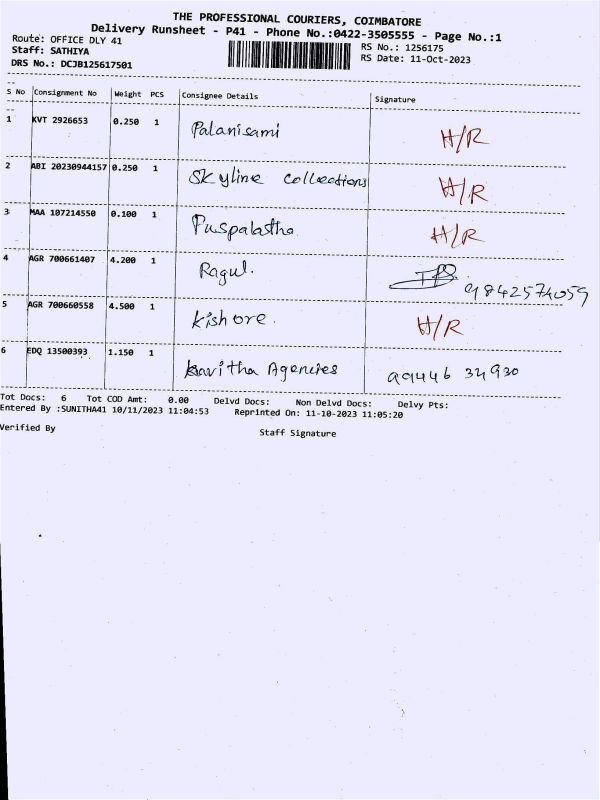 THE PROFESSIONAL COURIERS, COIMBATORE
Delivery Runsheet - P41 - Phone No.:0422-3505555 - Page No.:1
Route: OFFICE DLY 41
RS No.: 1256175
Staff: SATHIYA
RS Date: 11-Oct-2023
DRS No.: DCJB125617501
S No Consignment No Weight PCS Consignee Details Signature
1 KVT 2926653 0.250 1 Palanisami H/R
2 ABI 20230944157 0.250 1 Skyline collections H/R
3 MAA 107214550 0.100 1 Puspalatha H/R
4 AGR 700661407 4.200 1 Ragul. 9842574059
5 AGR 700660558 4.500 1 kishore. H/R
6 EDQ 13500393 1.150 1 kavitha Agencies 99446 34930
Tot Docs: 6 Tot COD Amt: 0.00 Delvd Docs: Non Delvd Docs: Delvy Pts:
Entered By :SUNITHA41 10/11/2023 11:04:53 Reprinted On: 11-10-2023 11:05:20
Verified By Staff Signature